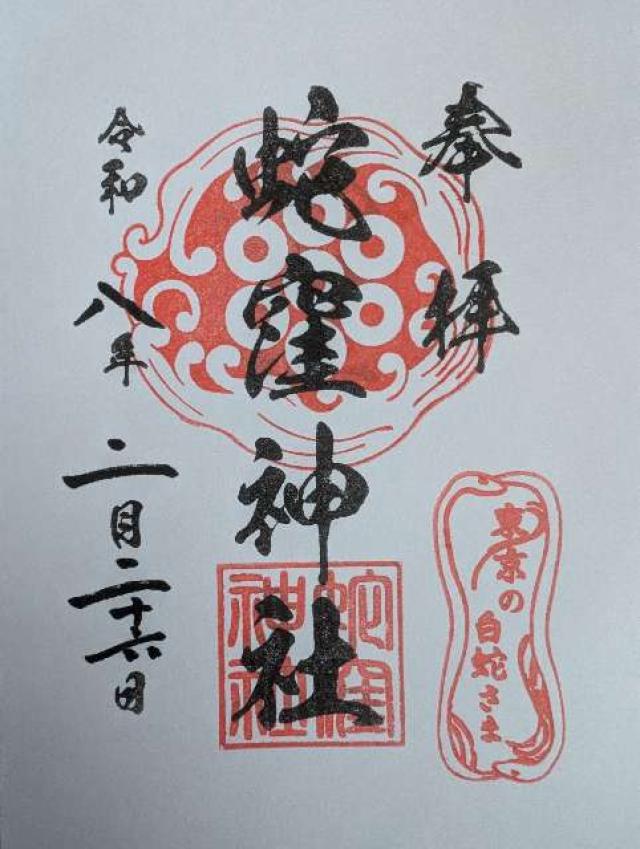 奉拝
蛇窪神社
令和八年二月二十六日
蛇窪神社
東京の
白蛇さま